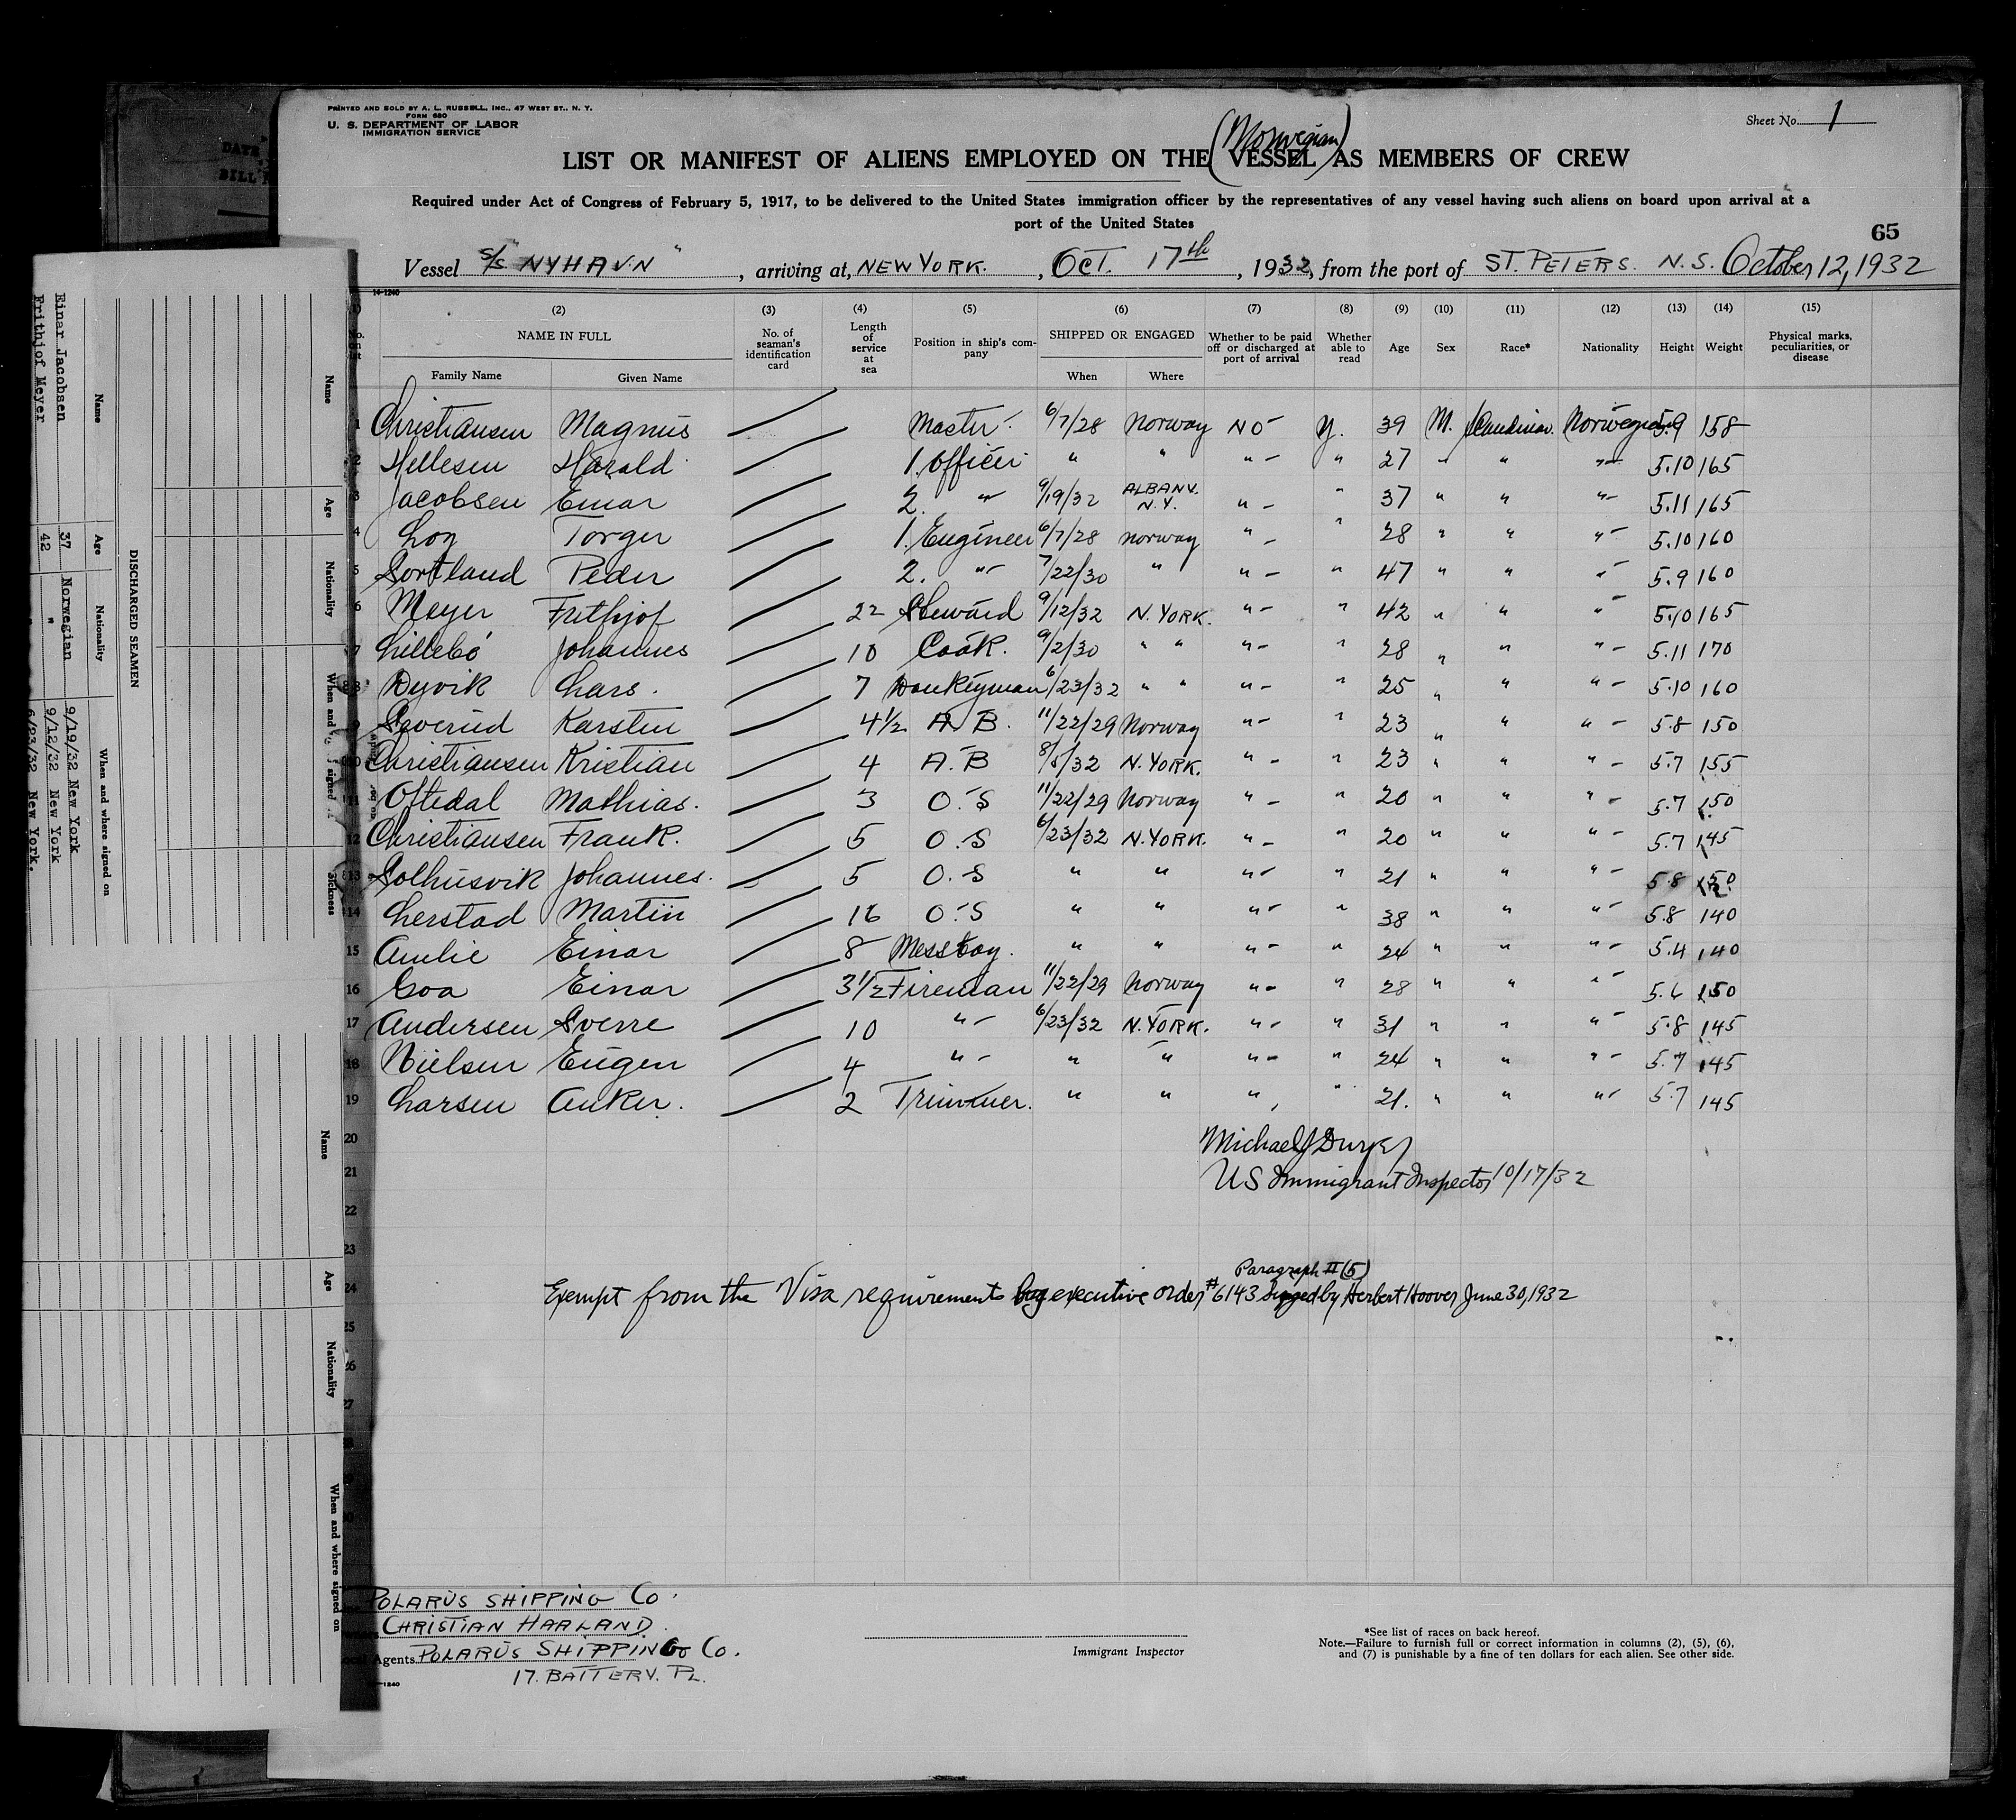 PRINTED AND SOLD BY A. L. RUSSELL, INC., 47 WEST ST., N. Y.
FORM 680
U. S. DEPARTMENT OF LABOR
IMMIGRATION SERVICE
Sheet No. 1
(Norwegian)
LIST OR MANIFEST OF ALIENS EMPLOYED ON THE VESSEL AS MEMBERS OF CREW
Required under Act of Congress of February 5, 1917, to be delivered to the United States immigration officer by the representatives of any vessel having such aliens on board upon arrival at a
port of the United States
65
Vessel S/S "NYHAVN", arriving at, NEW YORK., OCT. 17th, 1932, from the port of ST. PETERS. N.S. October 12, 1932
14-1240
(1) (2) (3) (4) (5) (6) (7) (8) (9) (10) (11) (12) (13) (14) (15)
NAME IN FULL No. of seaman's identification card Length of service at sea Position in ship's company SHIPPED OR ENGAGED Whether to be paid off or discharged at port of arrival Whether able to read Age Sex Race* Nationality Height Weight Physical marks, peculiarities, or disease
Family Name Given Name When Where
1 Christiansen Magnus Master 6/7/28 Norway NO - y. 39 M. Scandinav. Norwegian 5.9 158
2 Hellesen Harald 1. Officer " " " - " 27 " " " - 5.10 165
3 Jacobsen Einar 2. " - 9/19/32 ALBANY. N.Y. " - " 37 " " " - 5.11 165
4 Loy Torger 1. Engineer 6/7/28 Norway " - " 28 " " " - 5.10 160
5 Sortland Peder 2. " - 7/22/30 " " - " 47 " " " - 5.9 160
6 Meyer Frithjof 22 Steward 9/12/32 N. YORK. " - " 42 " " " - 5.10 165
7 Lillebö Johannes 10 Cook. 9/2/30 " " " - " 28 " " " - 5.11 170
8 Dyvik Lars. 7 Donkeyman 6/23/32 " " " - " 25 " " " - 5.10 160
9 Saverud Karsten 4½ A.B. 11/22/29 Norway " - " 23 " " " - 5.8 150
10 Christiansen Kristian 4 A.B 8/5/32 N. YORK. " - " 23 " " " - 5.7 155
11 Oftedal Mathias. 3 O.S 11/22/29 Norway " - " 20 " " " - 5.7 150
12 Christiansen Frank. 5 O.S 6/23/32 N. YORK. " - " 20 " " " - 5.7 145
13 Solhusvik Johannes. 5 O.S " " " - " 21 " " " - 5.8 150
14 Lerstad Martin 16 O.S " " " - " 38 " " " - 5.8 140
15 Amlie Einar 8 Messboy. " " " - " 24 " " " - 5.4 140
16 Goa Einar 3½ Fireman 11/22/29 Norway " - " 28 " " " - 5.6 150
17 Andersen Sverre 10 " - 6/23/32 N. YORK. " - " 31 " " " - 5.8 145
18 Nielsen Eugen 4 " - " " " - " 24 " " " - 5.7 145
19 Larsen Anker. 2 Trimmer. " " " , " 21. " " " - 5.7 145
20
21
22
23
24
25
26
27
Michael J Durkey
US Immigrant Inspector 10/17/32
Paragraph II (5)
Exempt from the Visa requirements by executive order #6143 Signed by Herbert Hoover June 30, 1932
POLARUS SHIPPING Co.
CHRISTIAN HAALAND
Agents POLARUS SHIPPING Co.
17. BATTERY. PL.
Immigrant Inspector
*See list of races on back hereof.
Note.—Failure to furnish full or correct information in columns (2), (5), (6),
and (7) is punishable by a fine of ten dollars for each alien. See other side.
DISCHARGED SEAMEN
Name Age Nationality When and where signed on
Einar Jacobsen 37 Norwegian 9/19/32 New York
Frithjof Meyer 42 " 9/12/32 New York
6/23/32 New York.
Name Age Nationality When and signed
Sickness
Name Age Nationality When and where signed on
DATE
BILL